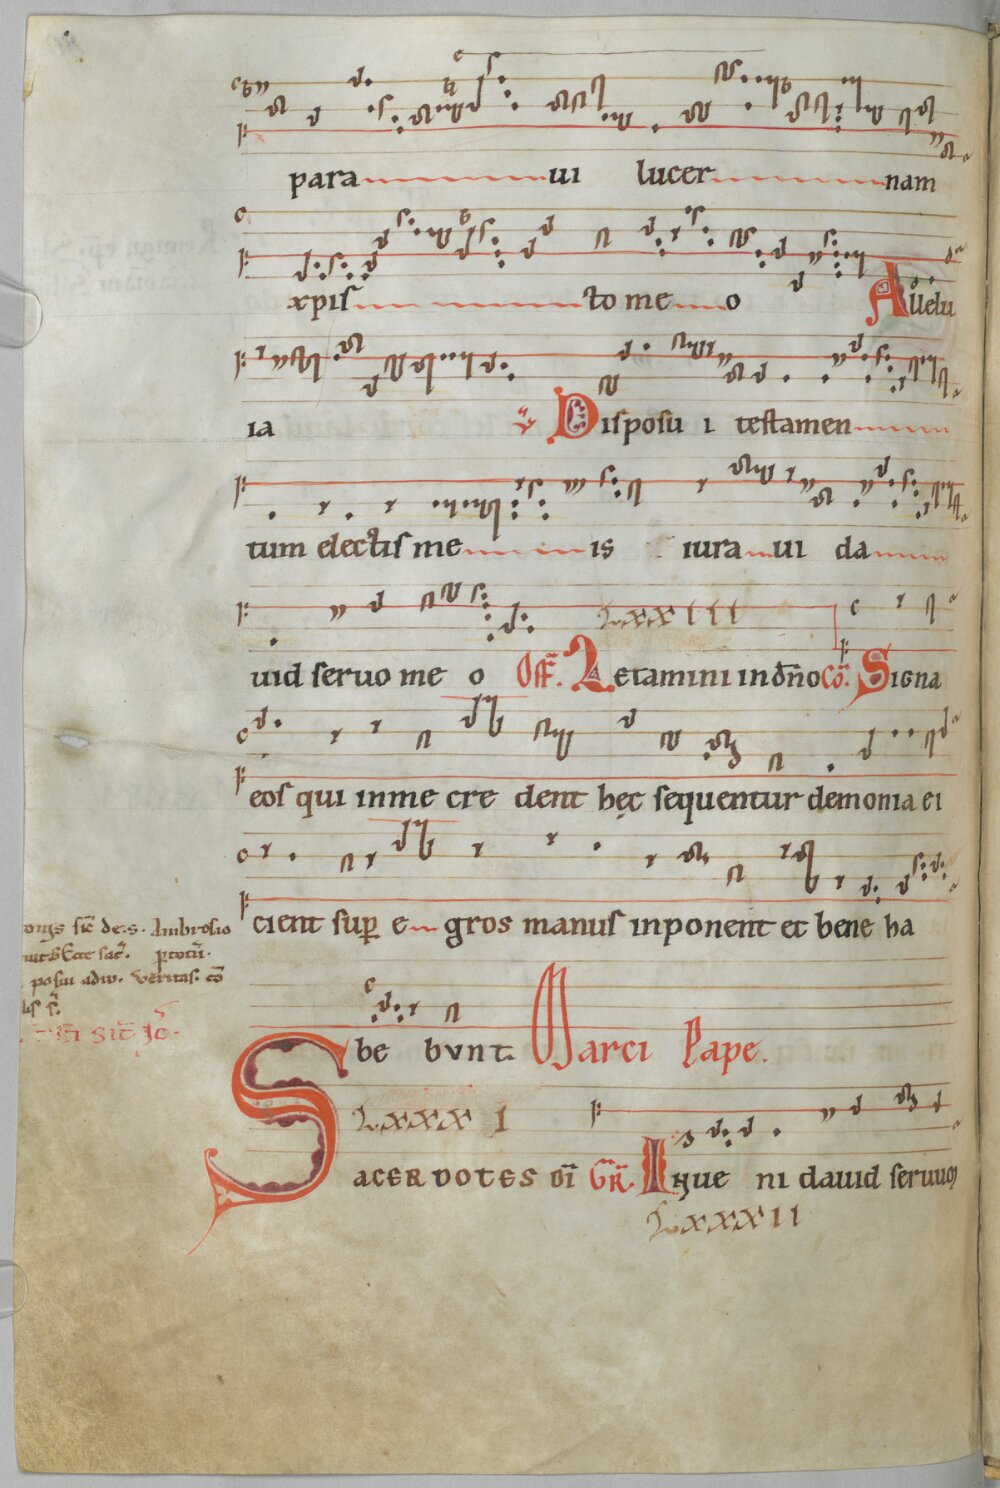 para ui lucer nam
xpis to me o Allelu
ia ℣ Disposu i testamen
tum electis me is iura ui da
LXXIII
uid seruo me o Off. Letamini in dn̄o Cō. Signa
eos qui in me cre dent hęc sequentur demonia ei
cient sup̱ e gros manus inponent et bene ha
be bunt. Marci Pape.
LXXX I
SACERDOTES DI GR. Inue ni dauid seruum
LXXXII
sic̄ de .s. Ambrosio
posui adiu. veritas. cō